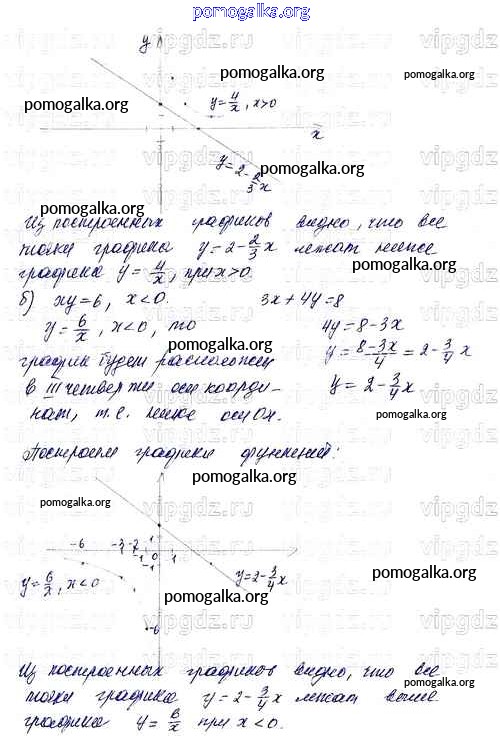 pomogalka.org
y
pomogalka.org
pomogalka.org
pomogalka.org
y = 4/x, x>0
x
y = 2 - 2/3 x
pomogalka.org
pomogalka.org
Из построенных графиков видно, что все
точки графика y = 2 - 2/3 x лежат ниже
графика y = 4/x, при x>0.
pomogalka.org
б) xy = 6, x<0. 3x + 4y = 8
y = 6/x, x<0, то 4y = 8 - 3x
pomogalka.org
график будет расположен y = (8 - 3x)/4 = 2 - 3/4 x
в III четверти оси коорди- y = 2 - 3/4 x
pomogalka.org
нат, т.е. ниже оси OX.
Построим графики функций:
pomogalka.org
pomogalka.org
-6 -3 -2 -1 0 1
1
-1
y = 6/x, x<0
y = 2 - 3/4 x
pomogalka.org
pomogalka.org
-6
Из построенных графиков видно, что все
pomogalka.org
точки графика y = 2 - 3/4 x лежат выше
графика y = 6/x при x<0.
pomogalka.org
vipgdz.ru